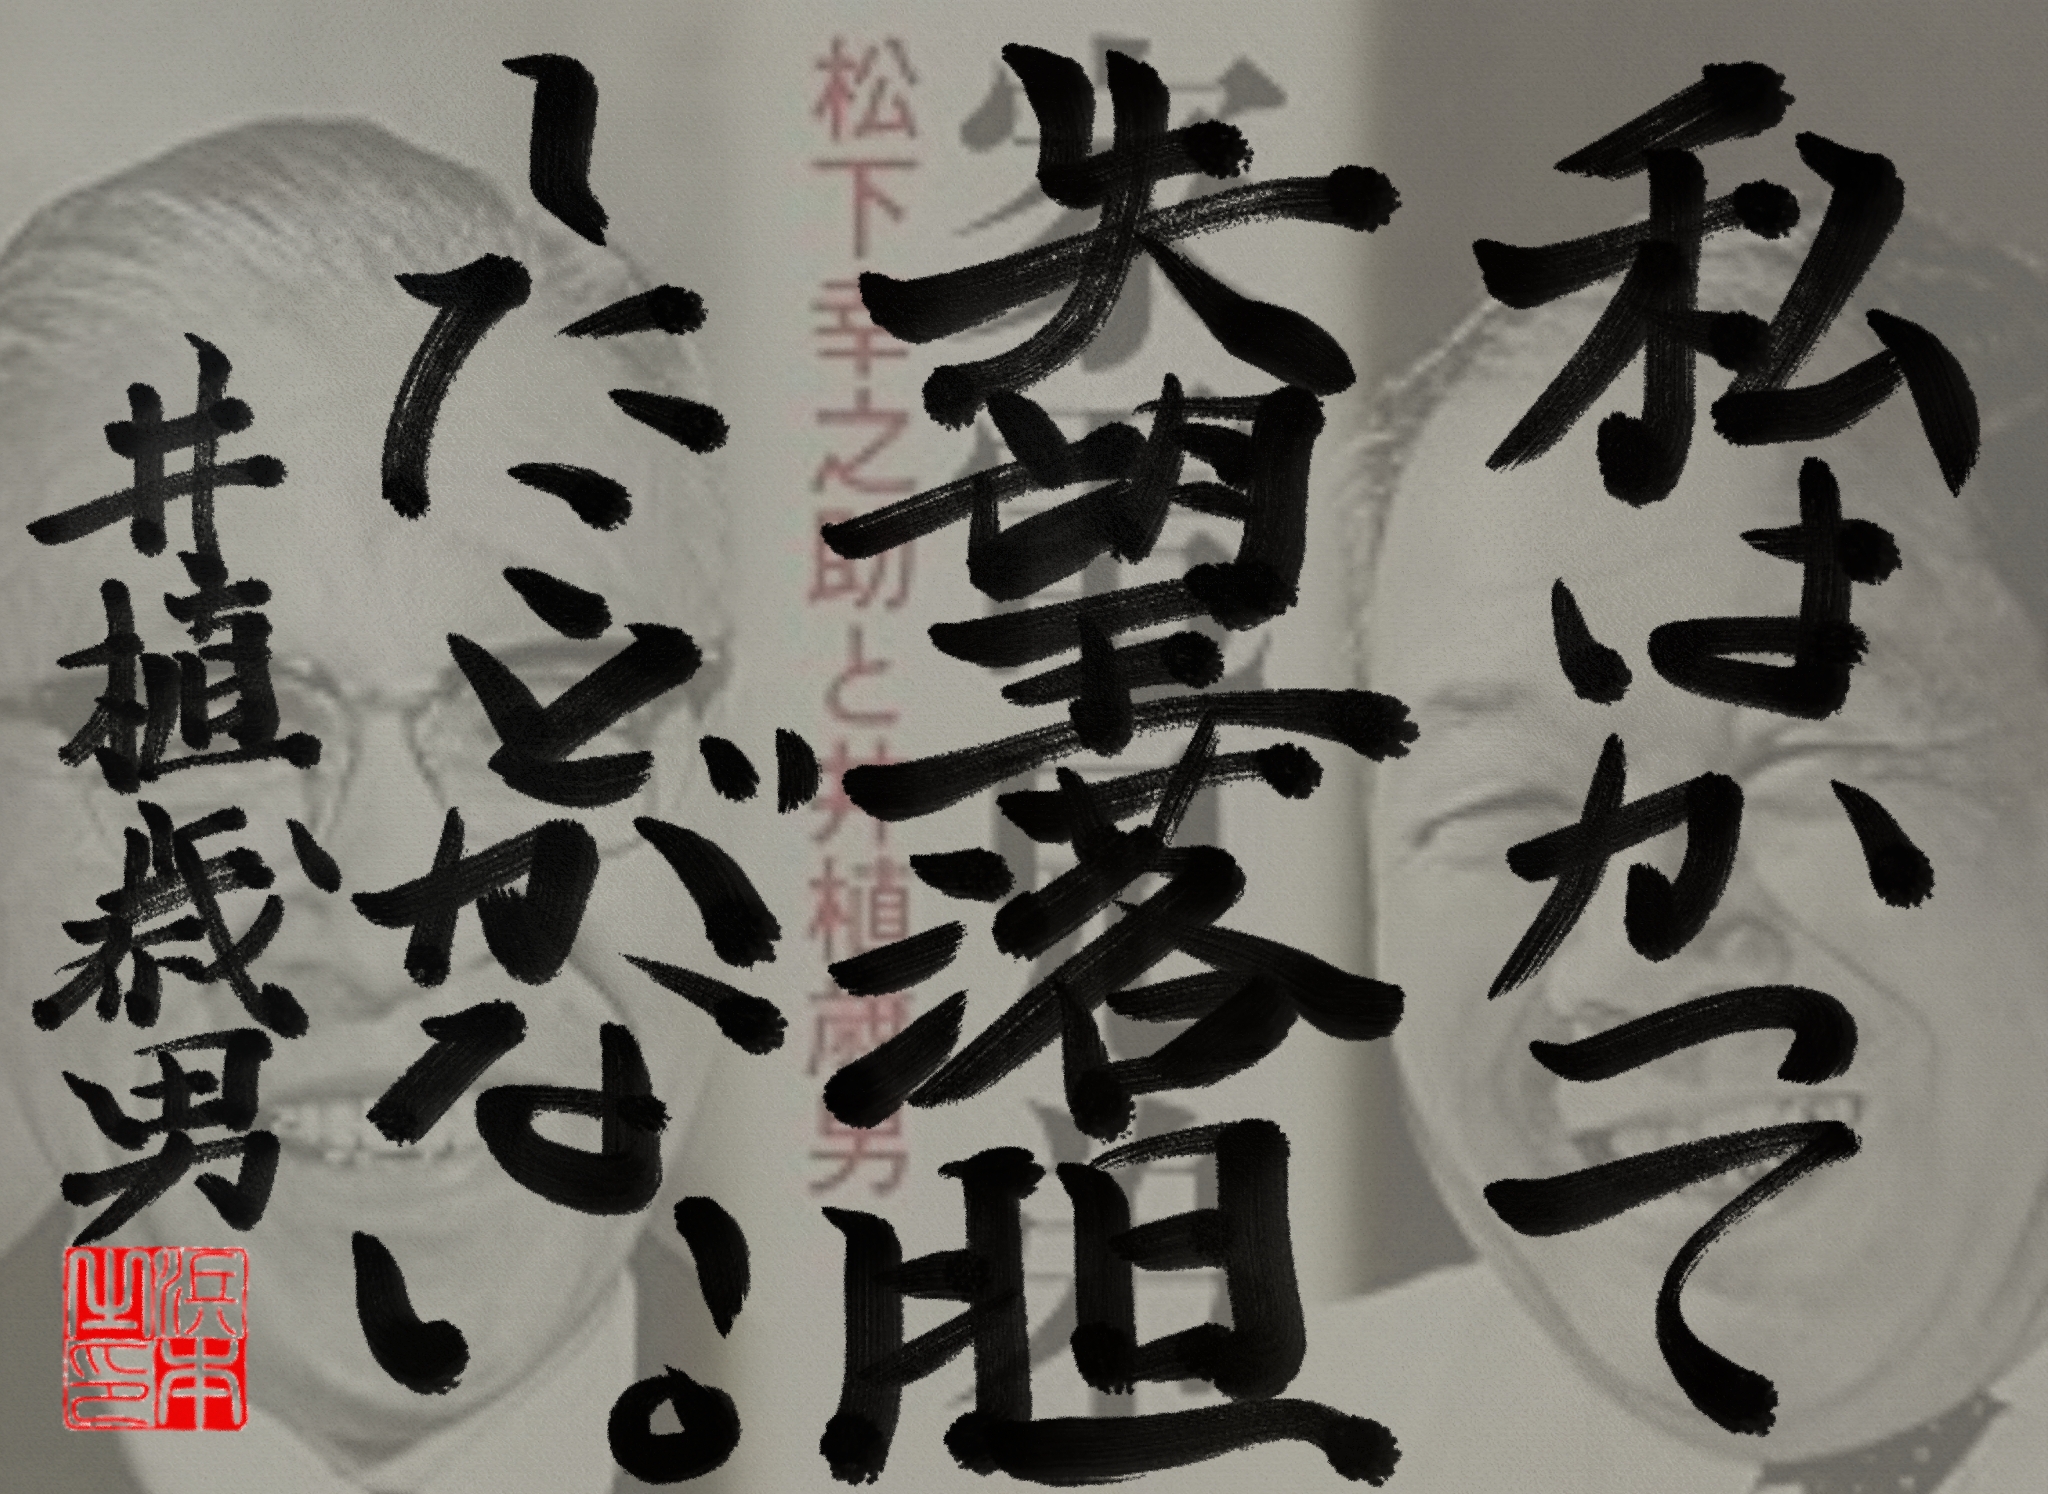 私はかつて
失望落胆
したことがない。
井植歳男
松下幸之助と井植歳男
浜本之印